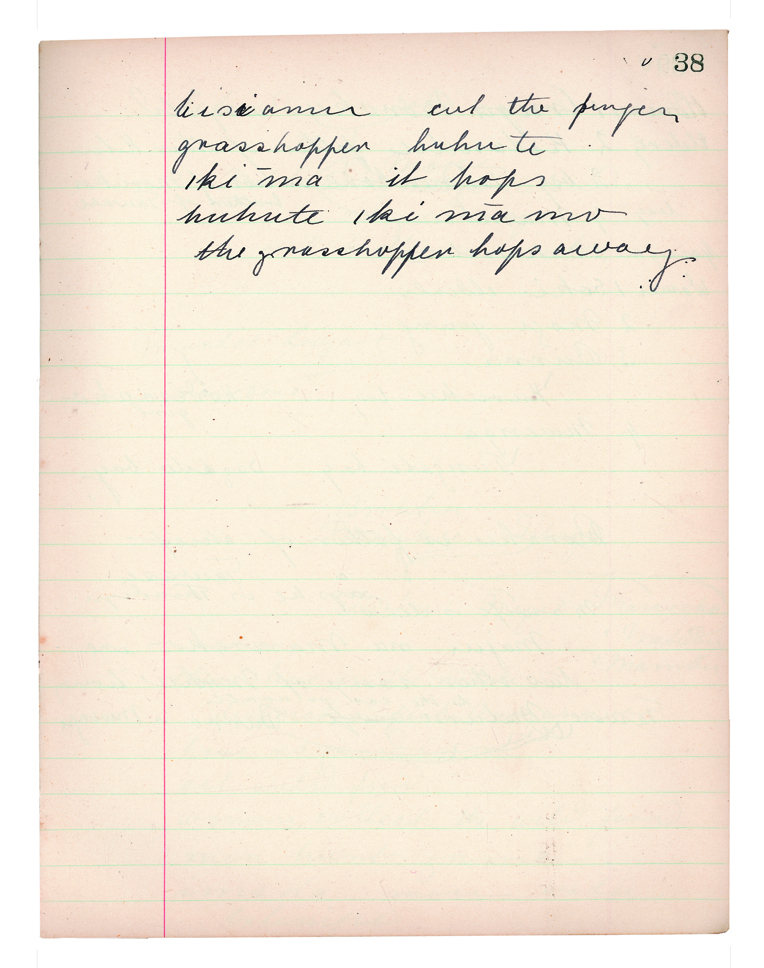 38
bisiamu cut the finger
grasshopper huhute
iki mā it hops
huhute iki mā mo
the grasshopper hops away.